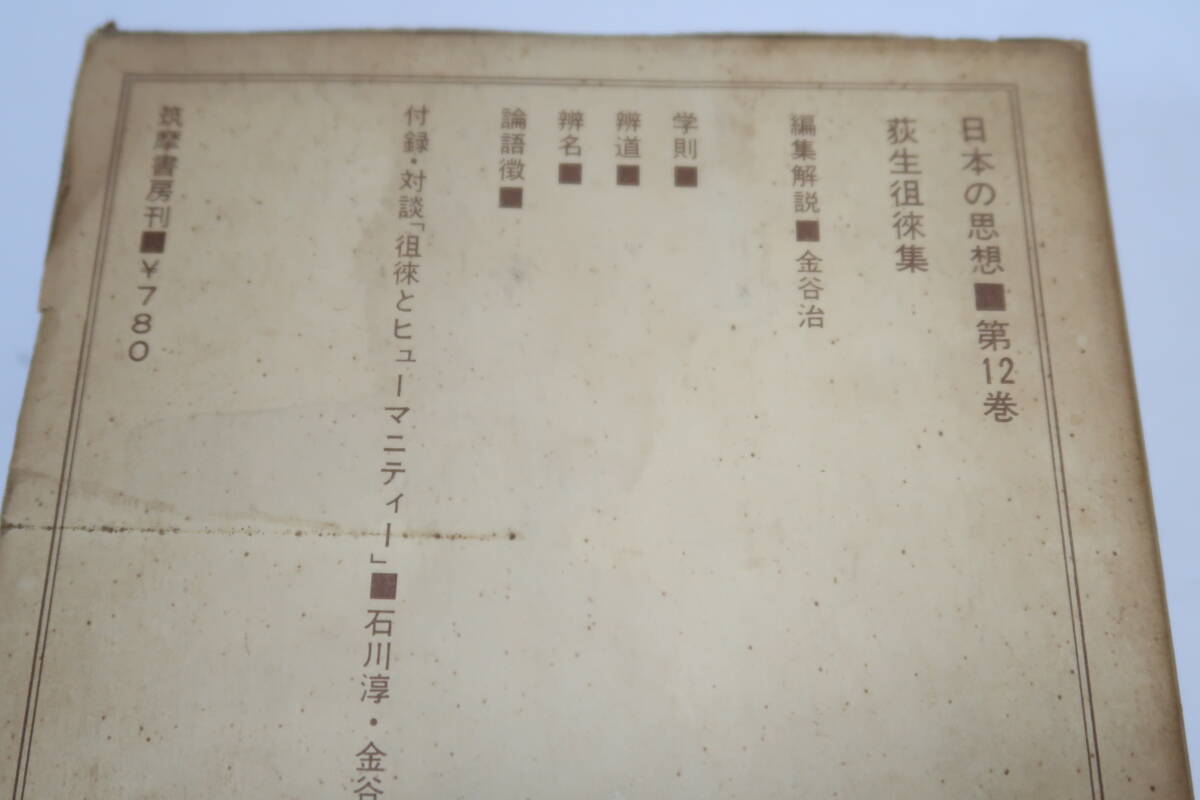 日本の思想■第12巻
荻生徂徠集
編集解説■金谷治
学則■
辨道■
辨名■
論語徴■
付録・対談「徂徠とヒューマニティー」■石川淳・金谷
筑摩書房刊■¥780